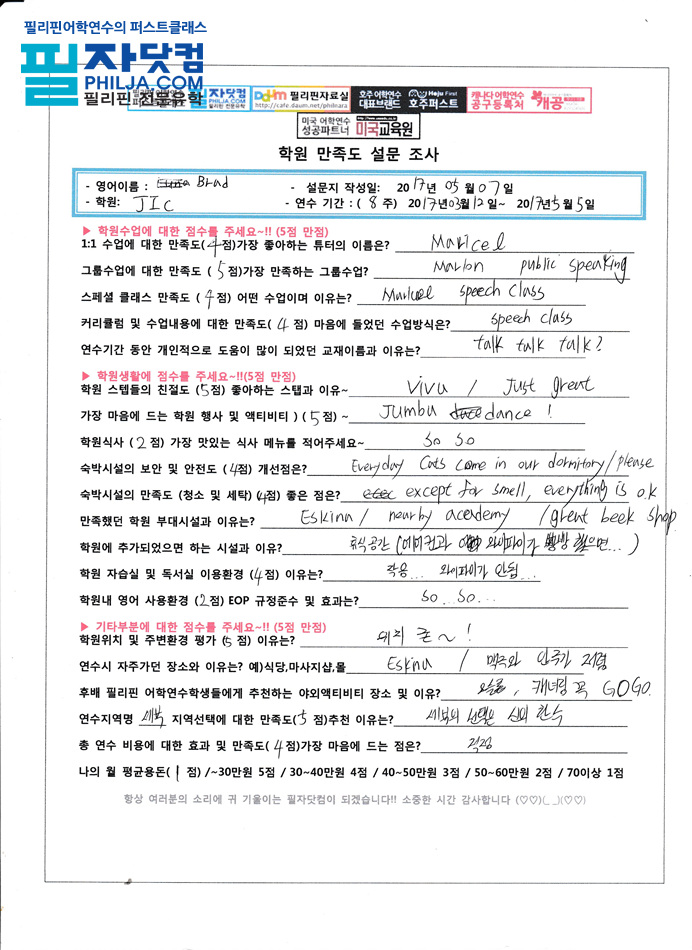 필리핀어학연수의 퍼스트클래스
필자닷컴
PHILJA.COM
필리핀 전문유학
필자닷컴 필리핀 전문유학 Daum 필리핀자료실 http://cafe.daum.net/philnara 호주 어학연수 대표브랜드 Hoju First 호주퍼스트 캐나다 어학연수 공구등록처 캐공
미국 어학연수 성공파트너 미국교육원
학원 만족도 설문 조사
- 영어이름 : Brad - 설문지 작성일: 2017년 05월 07일
- 학원: JIC - 연수 기간 : ( 8 주) 2017년03월12일~ 2017년5월5일
▶ 학원수업에 대한 점수를 주세요~!! (5점 만점)
1:1 수업에 대한 만족도(4점)가장 좋아하는 튜터의 이름은? Maricel
그룹수업에 대한 만족도 ( 5점)가장 만족하는 그룹수업? Marlon public speaking
스페셜 클래스 만족도 ( 4점) 어떤 수업이며 이유는? Maricel speech class
커리큘럼 및 수업내용에 대한 만족도( 4 점) 마음에 들었던 수업방식은? speech class
연수기간 동안 개인적으로 도움이 많이 되었던 교재이름과 이유는? talk talk talk?
▶ 학원생활에 점수를 주세요~!!(5점 만점)
학원 스텝들의 친절도 (5점) 좋아하는 스탭과 이유~ Viva / Just great
가장 마음에 드는 학원 행사 및 액티비티 ) ( 5점) ~ Jumba dance !
학원식사 ( 2 점) 가장 맛있는 식사 메뉴를 적어주세요~ so so
숙박시설의 보안 및 안전도 ( 4점) 개선점은? Everyday Cats come in our dormitory/please
숙박시설의 만족도 (청소 및 세탁) (4점) 좋은 점은? except for smell, everything is o.k
만족했던 학원 부대시설과 이유는? Eskina / nearby academy /great beek shop
학원에 추가되었으면 하는 시설과 이유? 휴식공간 (에어컨과 와이파이가 빵빵 했으면... )
학원 자습실 및 독서실 이용환경 ( 4점) 이유는? 작음... 와이파이가 안됨...
학원내 영어 사용환경 (2점) EOP 규정준수 및 효과는? so.. so...
▶ 기타부분에 대한 점수를 주세요~!! (5점 만점)
학원위치 및 주변환경 평가 (5 점) 이유는? 위치 굳~ !
연수시 자주가던 장소와 이유는? 예)식당,마사지샵,몰 Eskina / 맥주와 안주가 저렴
후배 필리핀 어학연수학생들에게 추천하는 야외액티비티 장소 및 이유? 오슬롭, 캐녀링 꼭 GOGO.
연수지역명 세부 지역선택에 대한 만족도(5 점)추천 이유는? 세부의 선택은 신의 한수
총 연수 비용에 대한 효과 및 만족도( 4점)가장 마음에 드는 점은? 걱정
나의 월 평균용돈( 1 점) /~30만원 5점 / 30~40만원 4점 / 40~50만원 3점 / 50~60만원 2점 / 70이상 1점
항상 여러분의 소리에 귀 기울이는 필자닷컴이 되겠습니다!! 소중한 시간 감사합니다 (♡♡)(_ _)(♡♡)